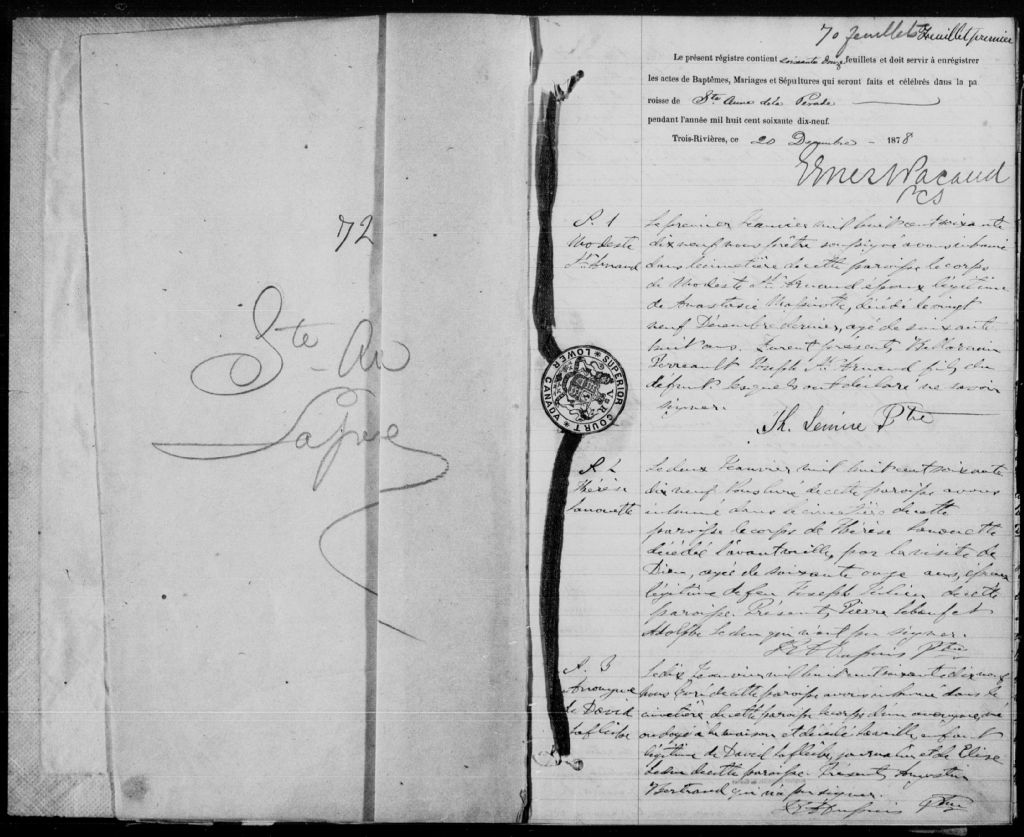 72
Ste An
Lapée
70 feuillets Feuillet premier
Le présent régistre contient soixante douze feuillets et doit servir à enrégistrer
les actes de Baptêmes, Mariages et Sépultures qui seront faits et célébrés dans la pa
roisse de Ste Anne de la Pérade
pendant l'année mil huit cent soixante dix-neuf.
Trois-Rivières, ce 20 Decembre - 1878
Ernest Pacaud
PCS
SUPERIOR COURT
LOWER CANADA
V R
S. 1
Modeste
St Arnaud
Le premier Janvier mil huit cent soixante
dix neuf nous prêtre soussigné avons inhumé
dans le cimetière de cette paroisse le corps
de Modeste St Arnaud époux légitime
de Anastasie Massicotte, décédé le vingt
neuf Décembre dernier, agé de soixante
huit ans. Furent présents Nazaire
Perreault Joseph St Arnaud fils du
défunt lesquels ont déclaré ne savoir
signer.
Th. Lemire Ptre
S. 2
Thérèse
Lanouette
Le deux Janvier mil huit cent soixante
dix neuf Nous curé de cette paroisse avons
inhumé dans le cimetière de cette
paroisse le corps de Thérèse Lanouette
décédée l'avant veille, par la visite de
Dieu, agée de soixante onze ans, épouse
légitime de feu Joseph Julien de cette
paroisse. Présents Pierre Leboeuf et
Adolphe Leduc qui n'ont pu signer.
Dupuis Ptre
S. 3
Anonyme
de David
Laflèche
Le dix Janvier mil huit cent soixante dix neuf
Nous Curé de cette paroisse avons inhumé dans le
cimetière de cette paroisse le corps d'un anonyme, né
ondoyé à la maison et décédé la veille, enfant
légitime de David Laflèche, journalier et de Elise
Leduc de cette paroisse. Présent Augustin
Bertrand qui n'a pu signer.
Dupuis Ptre